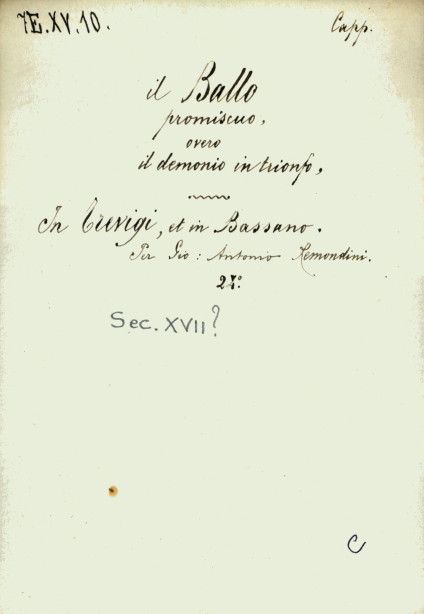 7E.XV.10.
Capp.
il Ballo
promiscuo,
overo
il demonio in trionfo,
In Trevigi, et in Bassano.
Per Gio: Antonio Remondini.
24°.
Sec. XVII?
C